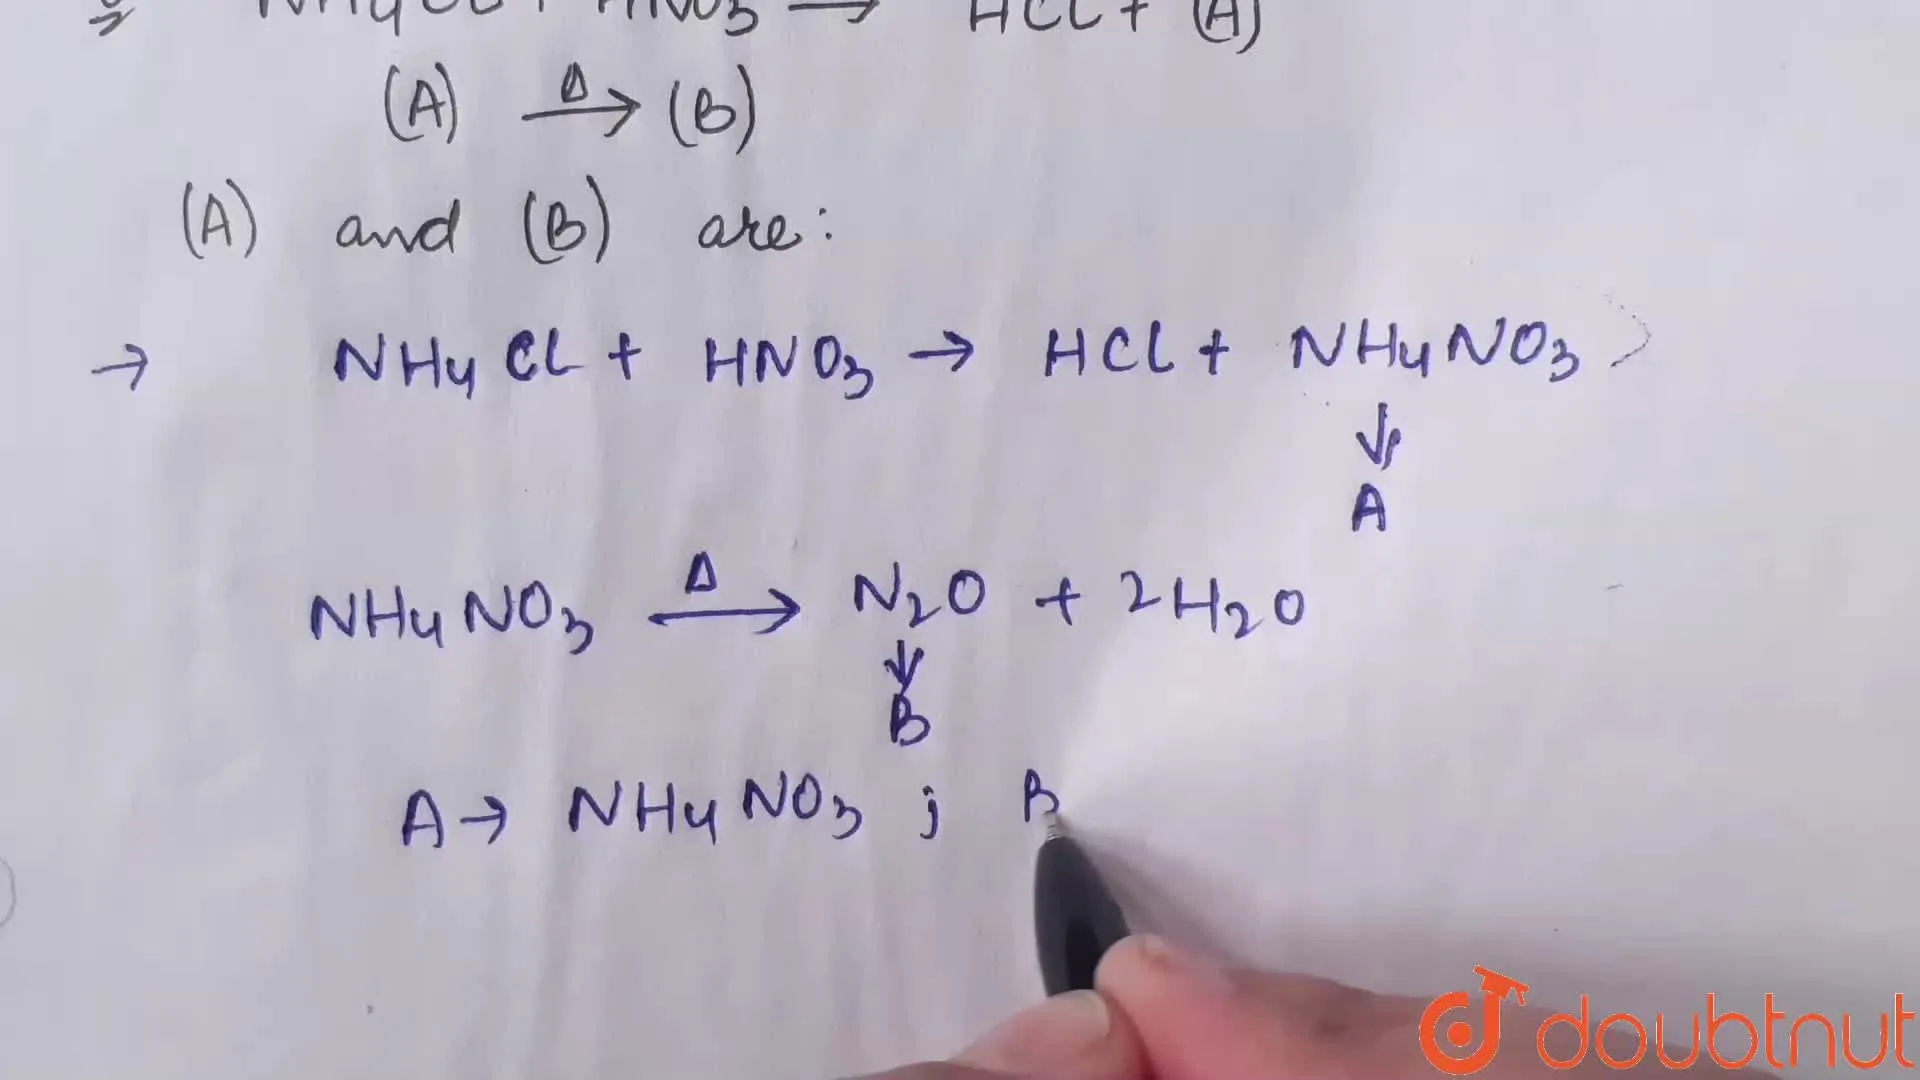 NH4Cl + HNO3 → HCl + (A)
(A) Δ→ (B)
(A) and (B) are:
→ NH4Cl + HNO3 → HCl + NH4NO3
↓
A
NH4NO3 Δ→ N2O + 2H2O
↓
B
A → NH4NO3 ; B
doubtnut